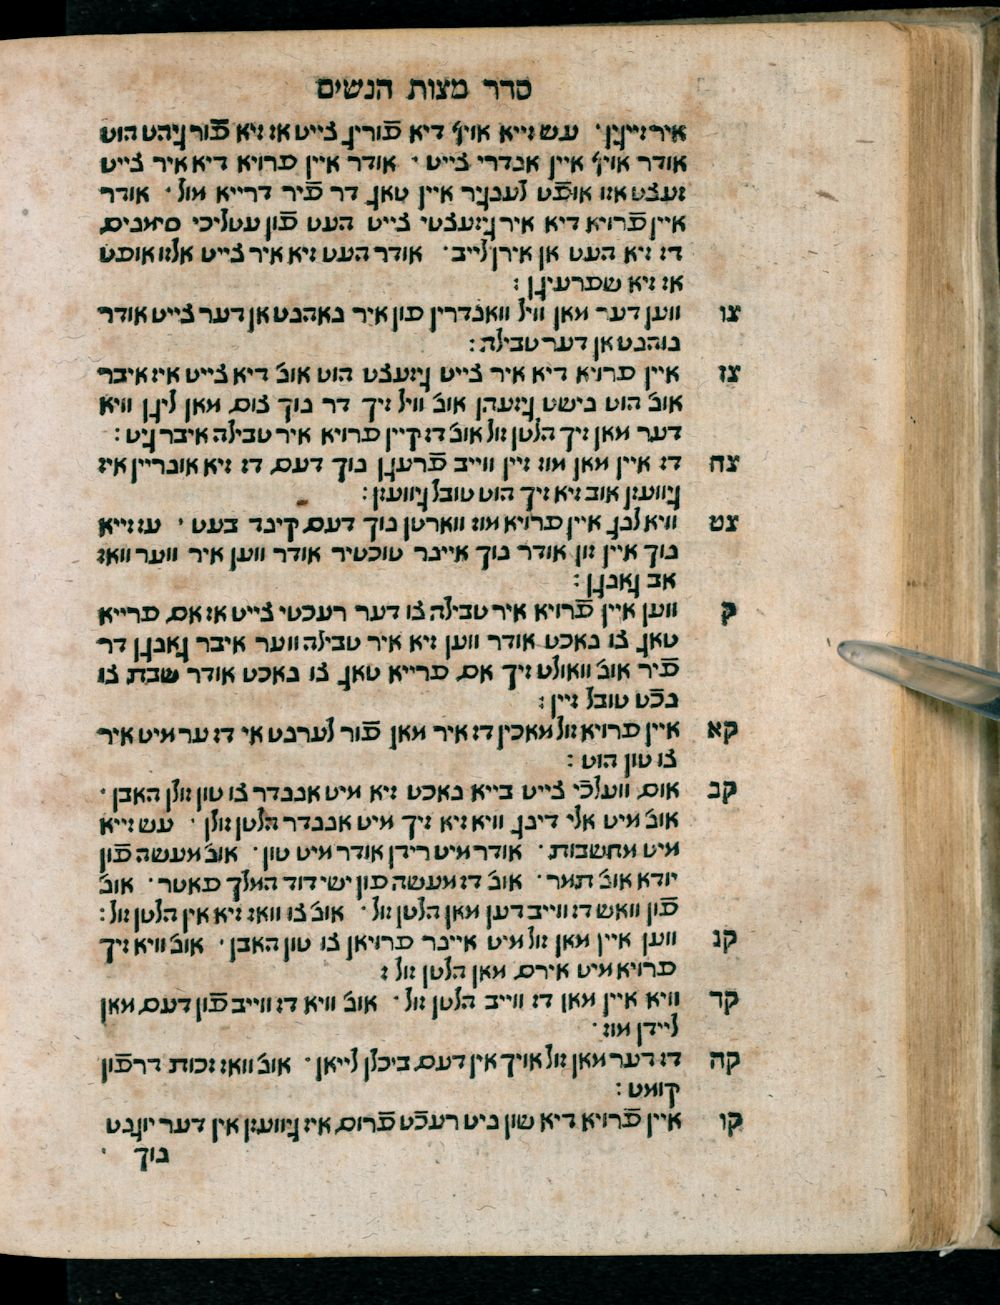 סדר מצות הנשים
איר זיינןן׳ עש זייא אויף דיא פֿורין צייט אז זיא פֿור גיהט הוט
אודר אויף איין אנדרי צייט ׳ אודר איין פרויא דיא איר צייט
זעצט אזו אופֿט לענגיר איין טאג דר פֿיר דרייא מול ׳ אודר
איין פֿרויא דיא איר גיזעצטי צייט העט פֿון עטליכי סימנים
דז זיא העט אן אירן לייב ׳ אודר העט זיא איר צייט אלזו אופט
אז זיא שפרעינגן :
צו ווען דער מאן וויל וואנדרין פון איר נאהנט אן דער צייט אודר
נוהנט אן דער טבילה :
צז איין פרויא דיא איר צייט גיזעצט הוט אוב׳ דיא צייט איז איבר
אוב׳ הוט נישט גיזעהן אוב׳ וויל זיך דר נוך צום מאן ליגן וויא
דער מאן זיך הלטן זול אוב׳ דז קיין פרויא איר טבילה איבר גיט :
צח דז איין מאן מוז זיין ווייב פֿרעגן נוך דעם דז זיא אונריין איז
גיוועזן אוב זיא זיך הוט טובל גיוועזן :
צט וויא לנג איין פרויא מוז ווארטן נוך דעם קינד בעט ׳ עז זייא
נוך איין זון אודר נוך איינר טוכטיר אודר ווען איר ווער וואז
אב גאנגן :
ק ווען איין פֿרויא איר טבילה צו דער רעכטי צייט אז אם פרייא
טאג צו נאכט אודר ווען זיא איר טבילה ווער איבר גאנגן דר
פֿיר אוב׳ וואולט זיך אם פרייא טאג צו נאכט אודר שבת צו
נכֿט טובל זיין :
קא איין פרויא זול מאכין דז איר מאן פֿור לערנט אי דז ער מיט איר
צו טון הוט :
קב אום וועלכֿי צייט בייא נאכט זיא מיט אננדר צו טון זולן האבן ׳
אוב׳ מיט אלי דינג וויא זיא זיך מיט אננדר הלטן זולן ׳ עש זייא
מיט מחשבות ׳ אודר מיט רידן אודר מיט טון ׳ אוב׳ מעשה פֿון
יודא אוב׳ תמר ׳ אוב׳ דז מעשה פון ישי דוד המלך פאטר ׳ אוב׳
פֿון וואש דז ווייב דען מאן הלטן זול ׳ אוב׳ צו וואז זיא אין הלטן זול :
קג ווען איין מאן זול מיט איינר פרויאן צו טון האבן ׳ אוב׳ וויא זיך
פרויא מיט אירם מאן הלטן זול :
קד וויא איין מאן דז ווייב הלטן זול ׳ אוב׳ וויא דז ווייב פֿון דעם מאן
ליידן מוז ׳
קה דז דער מאן זול אויך אין דעם ביכלן לייאן ׳ אוב׳ וואז זכות דר פֿון
קומט :
קו איין פֿרויא דיא שון ניט רעכֿט פֿרום איז גיוועזן אין דער יוגנט
נוך